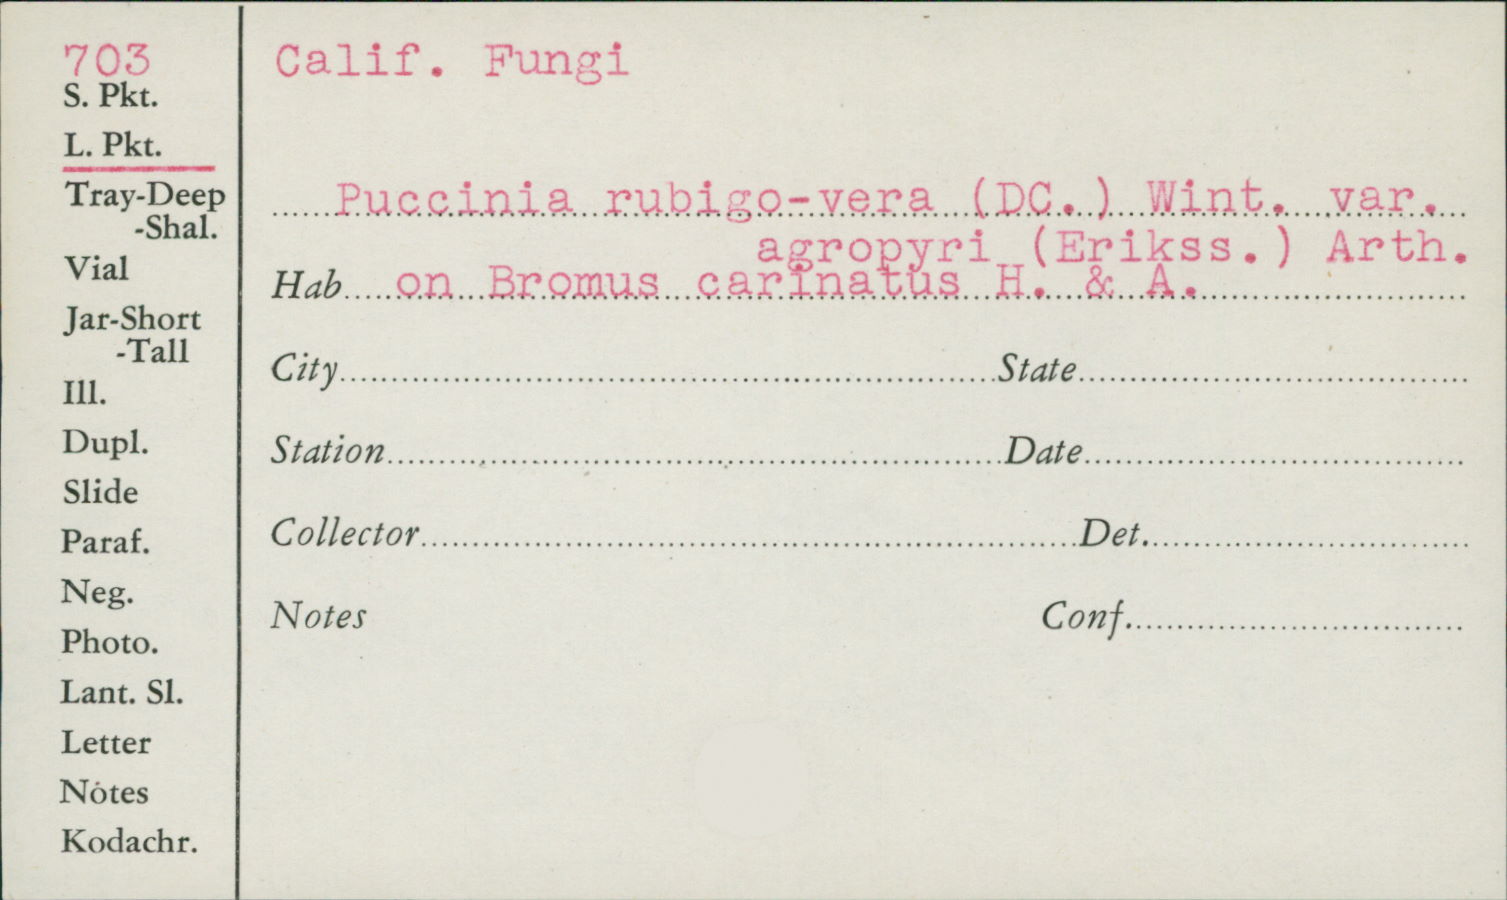 703
S. Pkt.
L. Pkt.
Tray-Deep
-Shal.
Vial
Jar-Short
-Tall
Ill.
Dupl.
Slide
Paraf.
Neg.
Photo.
Lant. Sl.
Letter
Notes
Kodachr.
Calif. Fungi
Puccinia rubigo-vera (DC.) Wint. var.
agropyri (Erikss.) Arth.
Hab on Bromus carinatus H. & A.
City State
Station Date
Collector Det.
Notes Conf.